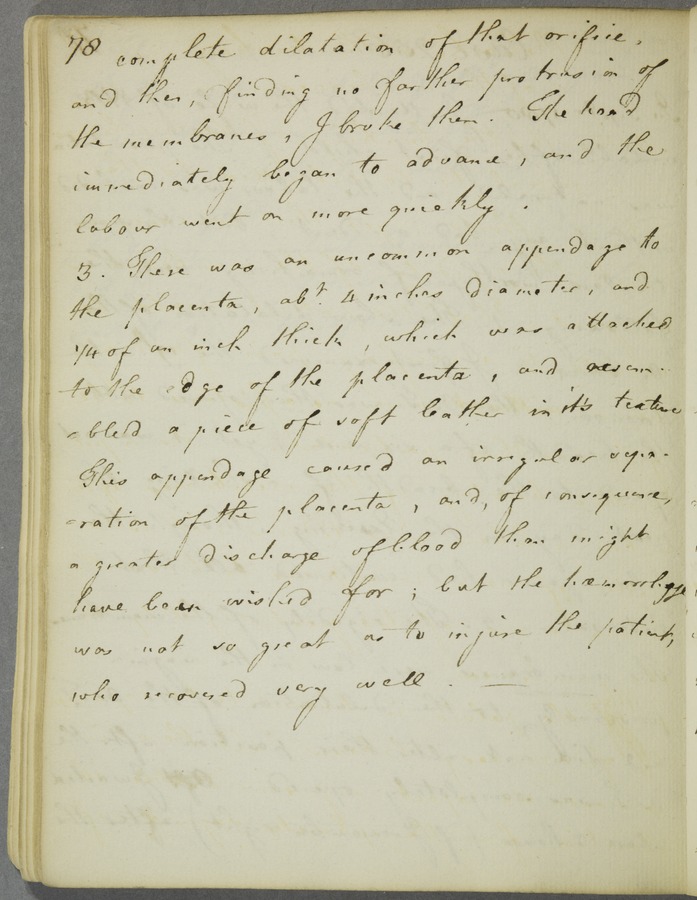 78 complete dilatation of that orifice,
and then, finding no farther protrusion of
the membranes, I broke them. The head
immediately began to advance, and the
labour went on more quickly.
3. There was an uncommon appendage to
the placenta, abt. 4 inches diameter, and
1/4 of an inch thick, which was attached
to the edge of the placenta, and resem-
-bled a piece of soft leather in it's texture
This appendage caused an irregular sepa-
-ration of the placenta, and, of consequence,
a greater discharge of blood than might
have been wished for; but the hæmorrhage
was not so great as to injure the patient,
who recovered very well. —